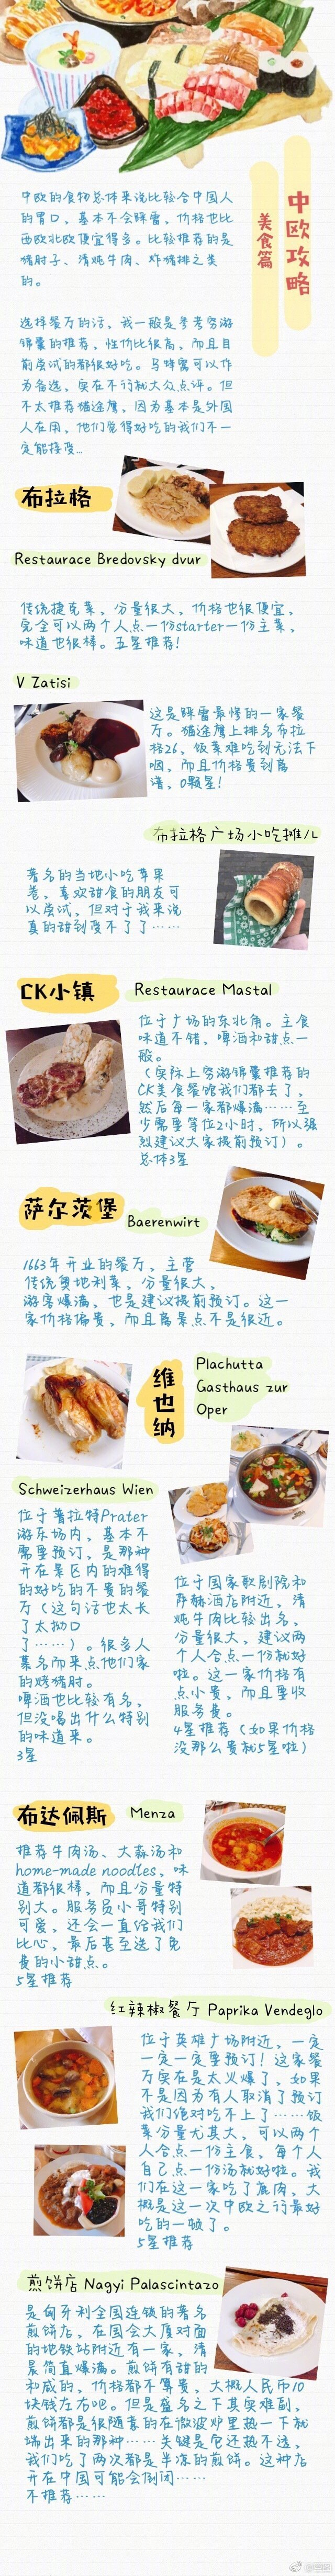 中欧攻略
美食篇
中欧的食物总体来说比较合中国人
的胃口，基本不会踩雷，价格也比
西欧北欧便宜得多。比较推荐的是
猪肘子、清炖牛肉、炸猪排之类
的。
选择餐厅的话，我一般是参考穷游
锦囊的推荐，性价比很高，而且目
前尝试的都很好吃。马蜂窝可以作
为备选，实在不行就大众点评。但
不太推荐猫途鹰，因为基本是外国
人在用，他们觉得好吃的我们不一
定能接受…
布拉格
Restaurace Bredovsky dvur
传统捷克菜，分量很大，价格也很便宜，
完全可以两个人点一份starter一份主菜，
味道也很棒。五星推荐！
V Zatisi
这是踩雷最惨的一家餐
厅。猫途鹰上排名布拉
格26，饭菜难吃到无法下
咽，而且价格贵到离
谱，0颗星！
布拉格广场小吃摊儿
著名的当地小吃苹果
卷，喜欢甜食的朋友可
以尝试，但对于我来说
真的甜到受不了了……
CK小镇
Restaurace Mastal
位于广场的东北角。主食
味道不错，啤酒和甜点一
般。
（实际上穷游锦囊推荐的
CK美食餐馆我们都去了，
然后每一家都爆满……至
少需要等位2小时，所以强
烈建议大家提前预订）。
总体3星
萨尔茨堡
Baerenwirt
1663年开业的餐厅，主营
传统奥地利菜，分量很大，
游客爆满，也是建议提前预订。这一
家价格偏贵，而且离景点不是很近。
维也纳
Plachutta
Gasthaus zur
Oper
Schweizerhaus Wien
位于普拉特Prater
游乐场内，基本不
需要预订，是那种
开在景区内的难得
的好吃的不贵的餐
厅（这句话也太长
了太拗口
了……）。很多人
慕名而来点他们家
的烤猪肘。
啤酒也比较有名，
但没喝出什么特别
的味道来。
3星
位于国家歌剧院和
萨赫酒店附近，清
炖牛肉比较出名，
分量很大，建议两
个人合点一份就好
啦。这一家价格有
点小贵，而且要收
服务费。
4星推荐（如果价格
没那么贵就5星啦）
布达佩斯
Menza
推荐牛肉汤、大蒜汤和
home-made noodles，味
道都很棒，而且分量特
别大。服务员小哥特别
可爱，还会一直给我们
比心，最后甚至送了免
费的小甜点。
5星推荐
红辣椒餐厅 Paprika Vendeglo
位于英雄广场附近，一定
一定一定要预订！这家餐
厅实在是太火爆了，如果
不是因为有人取消了预订
我们绝对吃不上了……饭
菜分量尤其大，可以两个
人合点一份主食，每个人
自己点一份汤就好啦。我
们在这一家吃了鹿肉，大
概是这一次中欧之行最好
吃的一顿了。
5星推荐
煎饼店 Nagyi Palascintazo
是匈牙利全国连锁的著名
煎饼店，在国会大厦对面
的地铁站附近有一家，清
晨简直爆满。煎饼有甜的
和咸的，价格都不算贵，大概人民币10
块钱左右吧。但是盛名之下其实难副，
煎饼都是很随意的在微波炉里热一下就
端出来的那种……关键是它还热不透，
我们吃了两次都是半冻的煎饼。这种店
开在中国可能会倒闭……
不推荐……